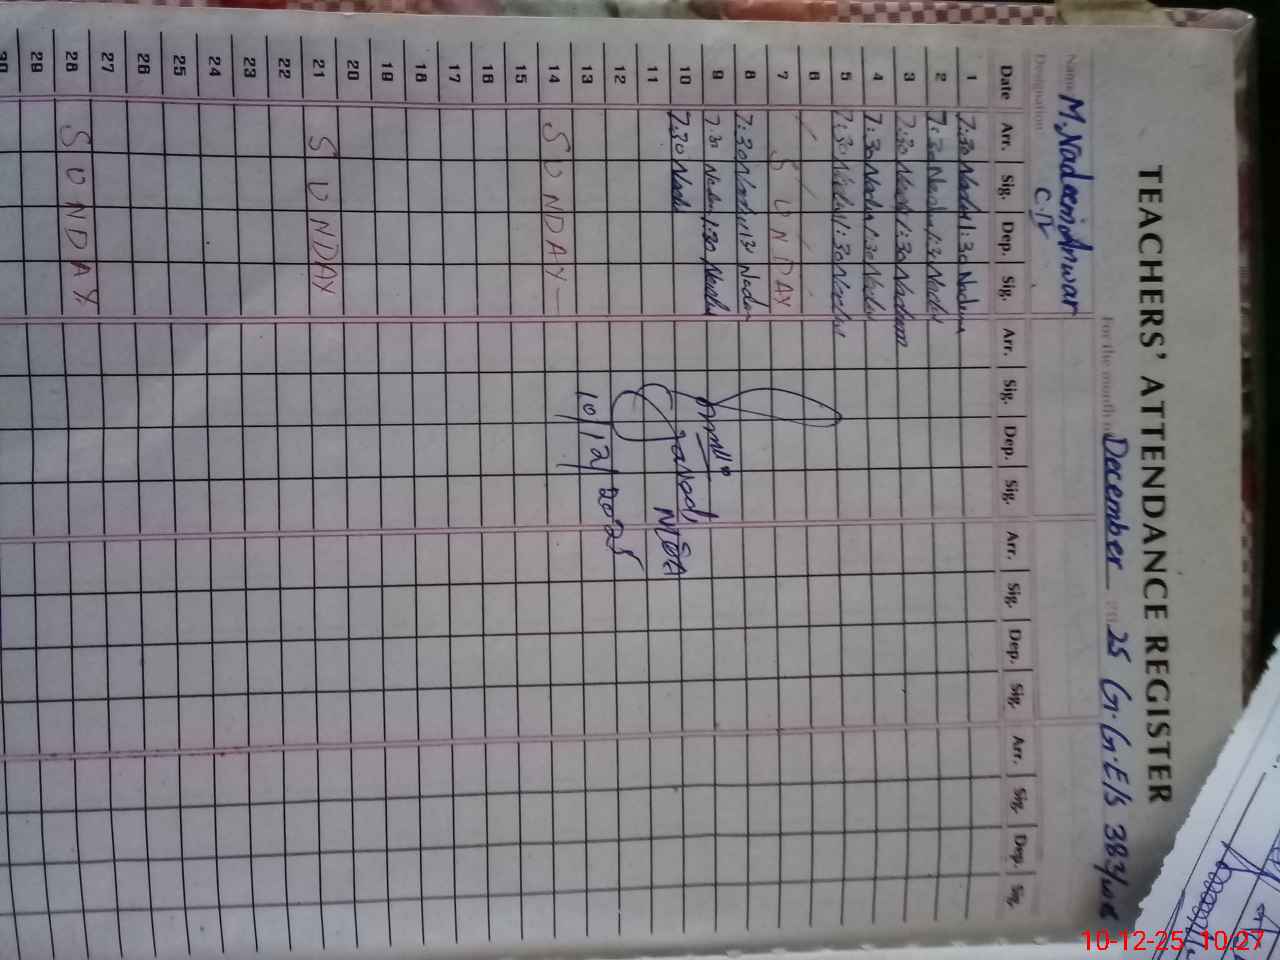 TEACHERS' ATTENDANCE REGISTER
For the month of December 2025 G.G.E/S 383/WB
Name M. Nadeem Anwar
Designation C.IV
Date Arr. Sig. Dep. Sig. Arr. Sig. Dep. Sig. Arr. Sig. Dep. Sig. Arr. Sig. Dep. Sig.
1 7:30 Nadeem 1:30 Nadeem
2 7:30 Nadeem 1:30 Nadeem
3 7:30 Nadeem 1:30 Nadeem
4 7:30 Nadeem 1:30 Nadeem
5 7:30 Nadeem 1:30 Nadeem
6
7 SUNDAY
8 7:30 Nadeem 1:30 Nadeem
9 7:30 Nadeem 1:30 Nadeem
10 7:30 Nadeem
11
12
13
14 SUNDAY
15
16
17
18
19
20
21 SUNDAY
22
23
24
25
26
27
28 SUNDAY
29
30
MEA
10/12/2025
10-12-25 10:27